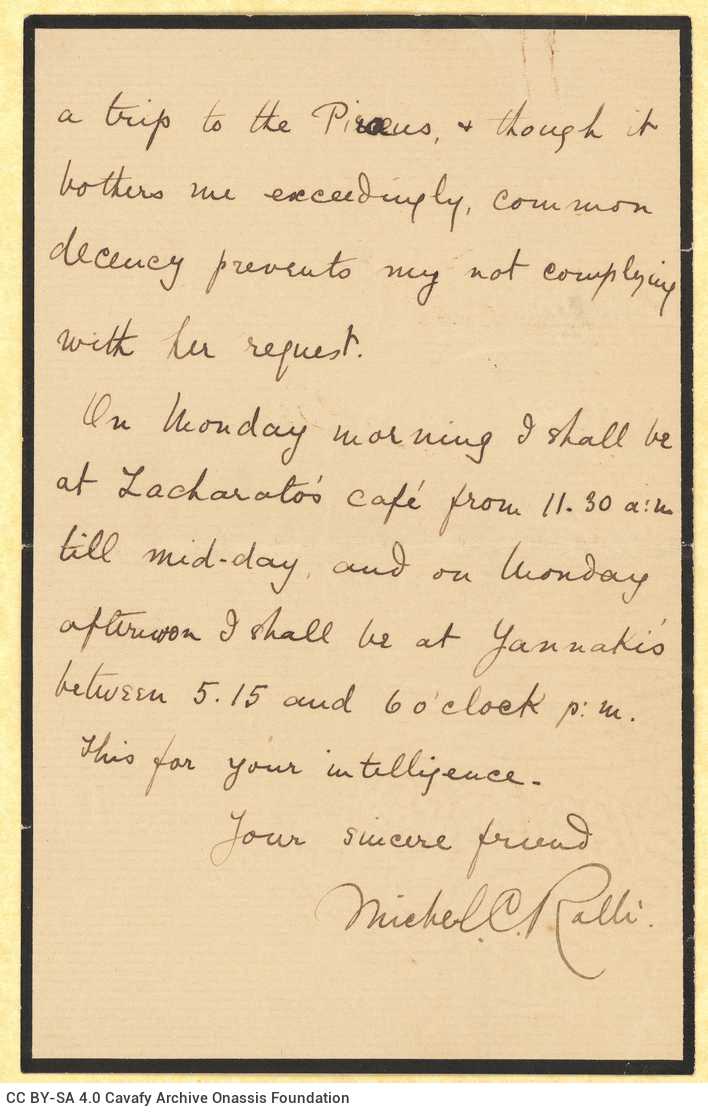 a trip to the Piraeus, & though it
bothers me exceedingly, common
decency prevents my not complying
with her request.
On Monday morning I shall be
at Zacharato's café from 11.30 a:m
till mid-day, and on Monday
afternoon I shall be at Yannaki's
between 5.15 and 6 o'clock p:m.
This for your intelligence.
Your sincere friend
Michel. C. Ralli.
CC BY-SA 4.0 Cavafy Archive Onassis Foundation